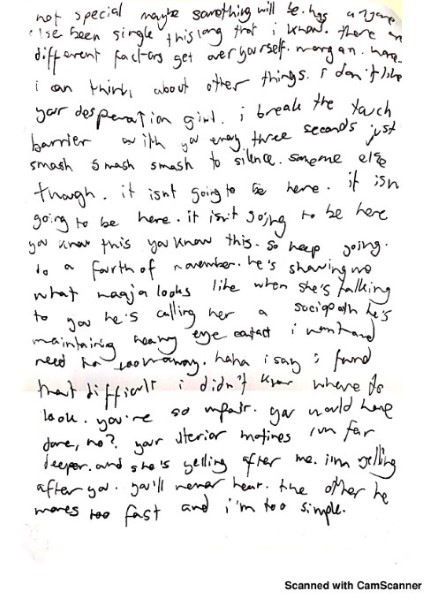 not special maybe something will be. has anyone
else been single this long that i know. there are
different factors get over yourself. morgan.
i can think about other things. i don't like
your desperation girl. i break the touch
barrier with you every three seconds just
smash smash smash to silence. someone else
though. it isnt going to be here. it isn
going to be here. it isn't going to be here
you know this you know this. so keep going.
to a fourth of november. he's showing me
what maaja looks like when she's talking
to you he's calling her a sociopath he's
maintaining heavy eye contact i want and
need to look away. haha i say i found
that difficult i didn't know where to
look. you're so unfair. you would have
done, no?. your ulterior motives run far
deeper. and she's yelling after me. i'm yelling
after you. you'll never hear. the other he
moves too fast and i'm too simple.
Scanned with CamScanner